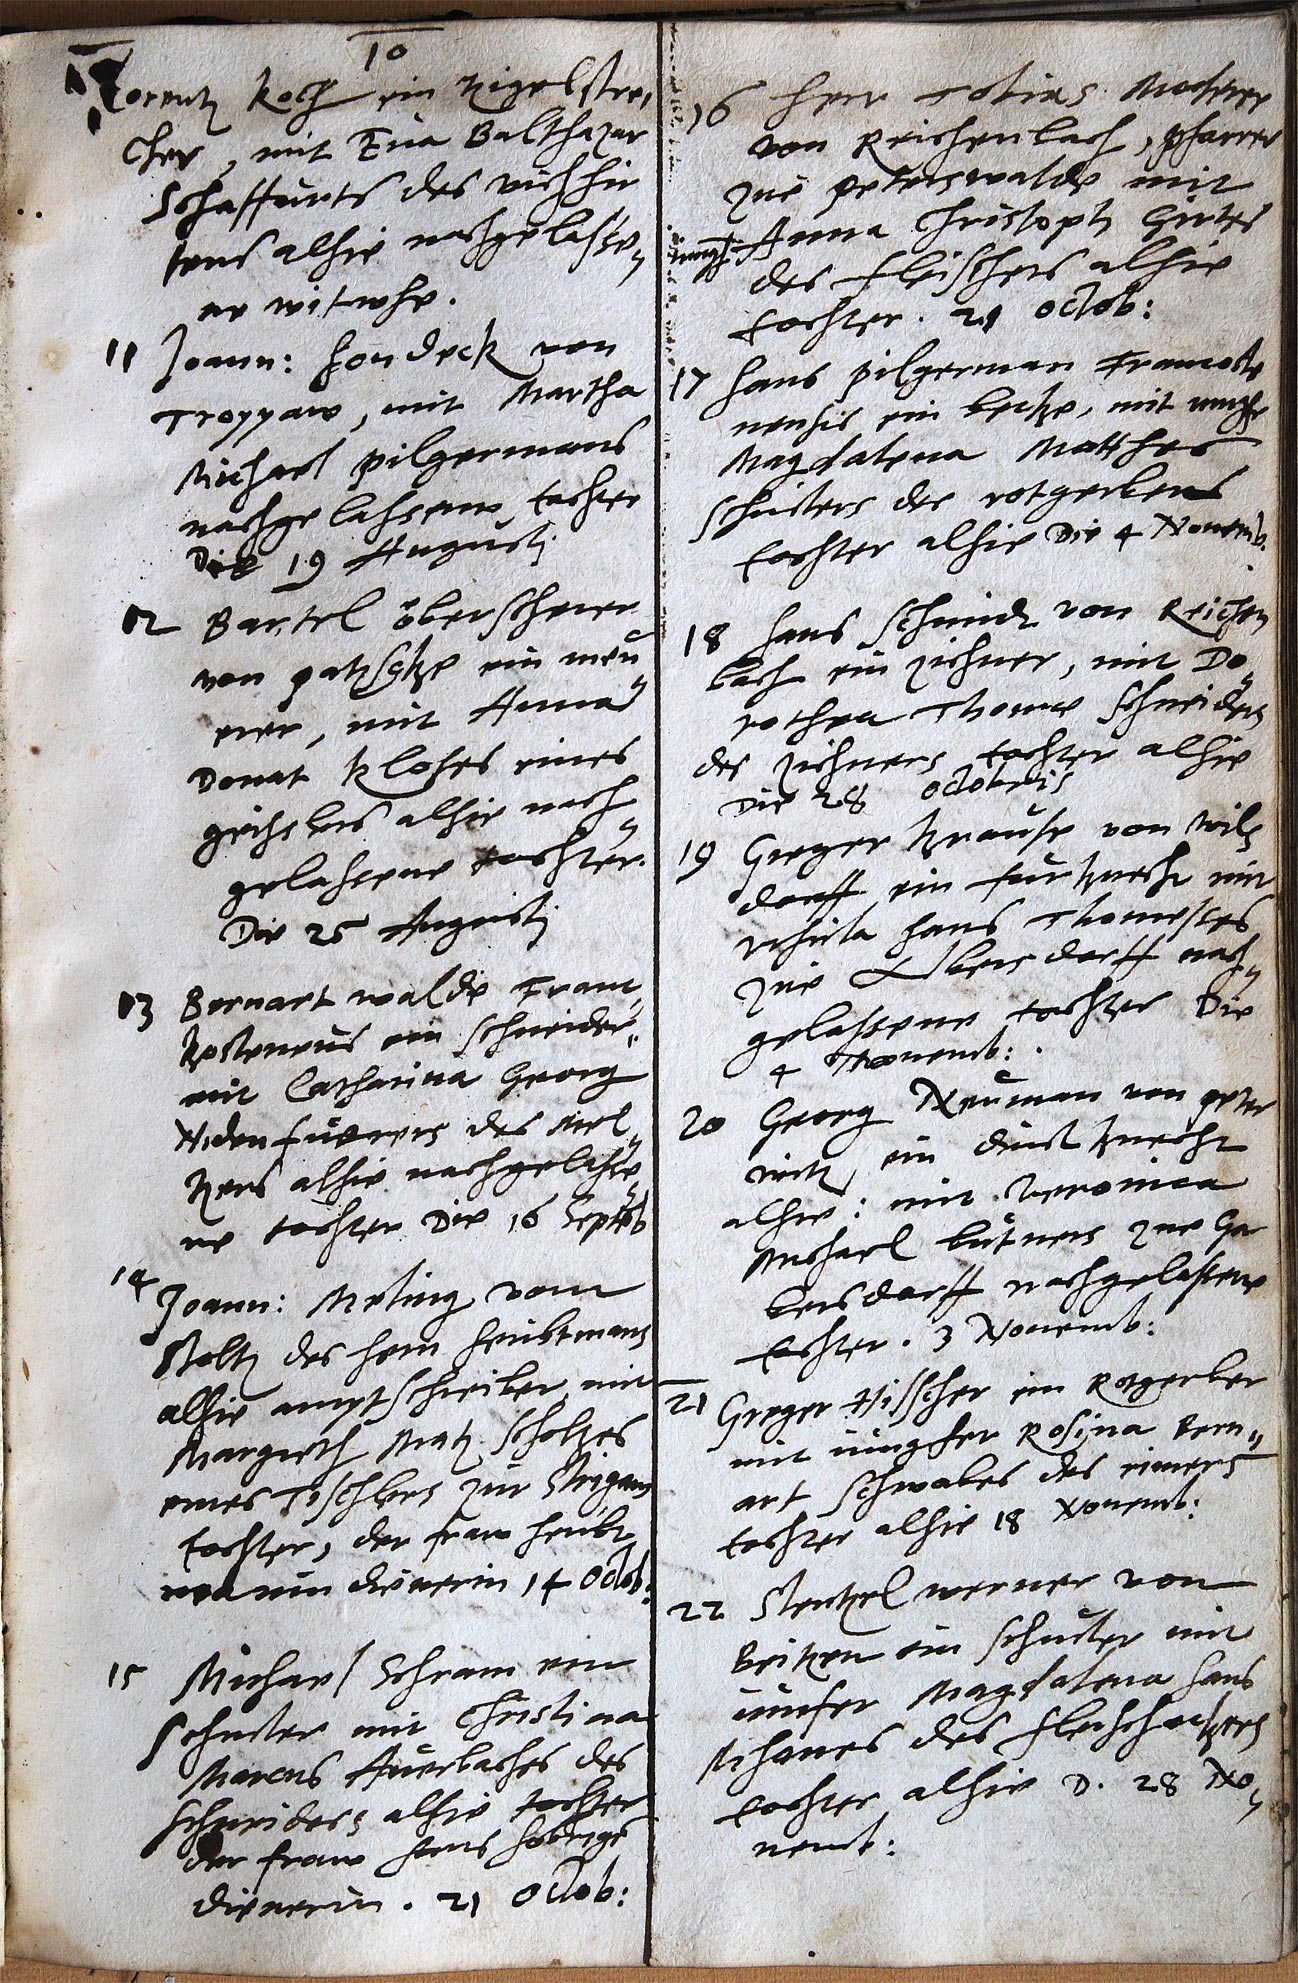 10
Lorentz Koch ein zigelstrei,
cher, mit Eua Balthazar
Schaffürts des vichhir
tens alhie nachgelasse,,
ne witwhe.
11 Joann: Hondeck von
Troppaw, mit Martha
Michael Pilgermans
nachgelassene tochter
Die 19 Augusti
12 Bartel öberscherer
von patzschke ein meu,,
rer, mit Anna
Donat Kloses eines
alhie nach,,
gelassene tochter.
Die 25 Augusti
13 Bernart walde Franc,,
kosteneus ein schneider,,
mit Catharina Georg
des mel,,
tzers alhie nachgelasse,,
ne tochter Die 16 Septeb
14 Joann: Meting vom
Stoltz des hern heubtmans
alhie amptschreiber mit
Margreth Matz Scholzes
eines Tischlers zur Strigaw
tochter, der fraw heubt
manin dienerin 14 Octob:
15 Michael Schram ein
schuster mit Christina
Marcus Auerbaches des
schneiders alhie tochter
der fraw Hans
dienerin. 21 Octob:
16 Herr Tobias
von Reichenbach, pfarrer
zue peterswalde mit
iungf: Anna Christoph Girtes
des fleischers alhie
tochter. 21 Octob:
17 Hans Pilgerman Francoste
nensis ein becke, mit iungfe
Magdalena Matthes
Schüsters des rotgerbers
tochter alhie Die 4 Nouemb.
18 Hans Schmidt von Reichen
bach ein zichner, mit Do,,
rothea Thomas Schneiders
des zichners tochter alhie
Die 28 octobris
19 Greger Krause von Wilz
dorff ein furknecht mit
Vrsula Hans
zue Olbersdorff nach,,
gelassene tochter Die
4 Nouemb:.
20 Georg Neuman von peter
witz ein dinstknecht
alhie: mit Veronica
Michael bütners zue Ga
bersdorff nachgelassene
tochter. 3 Nouemb:
21 Greger Hisscher ein Rotgerber
mit iungfer Rosina Bern,,
art Schwabes des rimers
tochter alhie 18 Nouemb:
22 Stentzel werner von
Britzen ein schuster mit
iunfer Magdalena Hans
des fleischackers
tochter alhie D. 28 No,,
uemb: